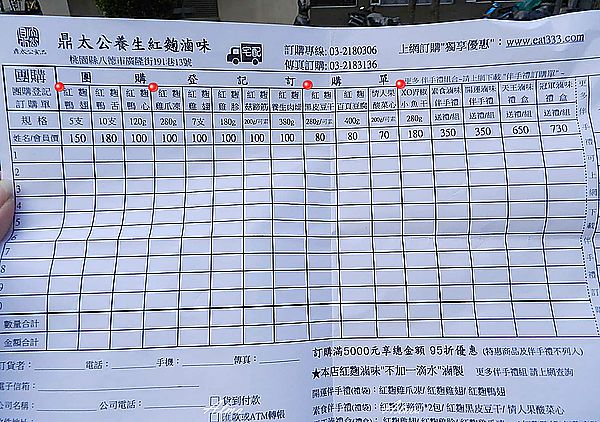 鼎太公養生紅麴滷味
鼎太公食品
桃園縣八德市廣隆街191巷13號
宅配
訂購專線: 03-2180306
傳真訂購: 03-2183136
上網訂購"獨享優惠": www.eat333.com
更多伴手禮組合~請上網下載"伴手禮訂購單"~
團購 團購登記訂購單
團購登記訂購單 紅麴鴨翅 紅麴鴨舌 紅麴鴨心 紅麴雞爪凍 紅麴雞翅 紅麴雞胗 紅麴菇蒟筋 紅麴養生肉燥 紅麴黑皮豆干 紅麴百頁豆腐 情人果酸菜心 XO丹椒小魚干 素食滷味伴手禮 開運滷味伴手禮 天王滷味禮盒 冠軍滷味禮盒
規格 5支 10支 120g 280g 7支 180g 200g/可素 380g 280g/可素 400g 200g/可素 280g 送禮/組 送禮/組 送禮/組 送禮/組
姓名/會員價 150 180 100 100 100 100 100 100 80 80 70 180 350 350 650 730
1
2
3
4
5
6
7
8
9
0
數量合計
金額合計
訂購滿5000元享總金額 95折優惠 (特惠商品及伴手禮不列入)
訂貨者: 電話: 手機: 傳真:
★本店紅麴滷味"不加一滴水"滷製 更多伴手禮組 請上網查詢
電子信箱:
開運伴手禮(禮袋): 紅麴雞爪凍/ 紅麴雞翅/ 紅麴鴨翅
公司名稱: 公司電話: 貨到付款
匯款或ATM轉帳